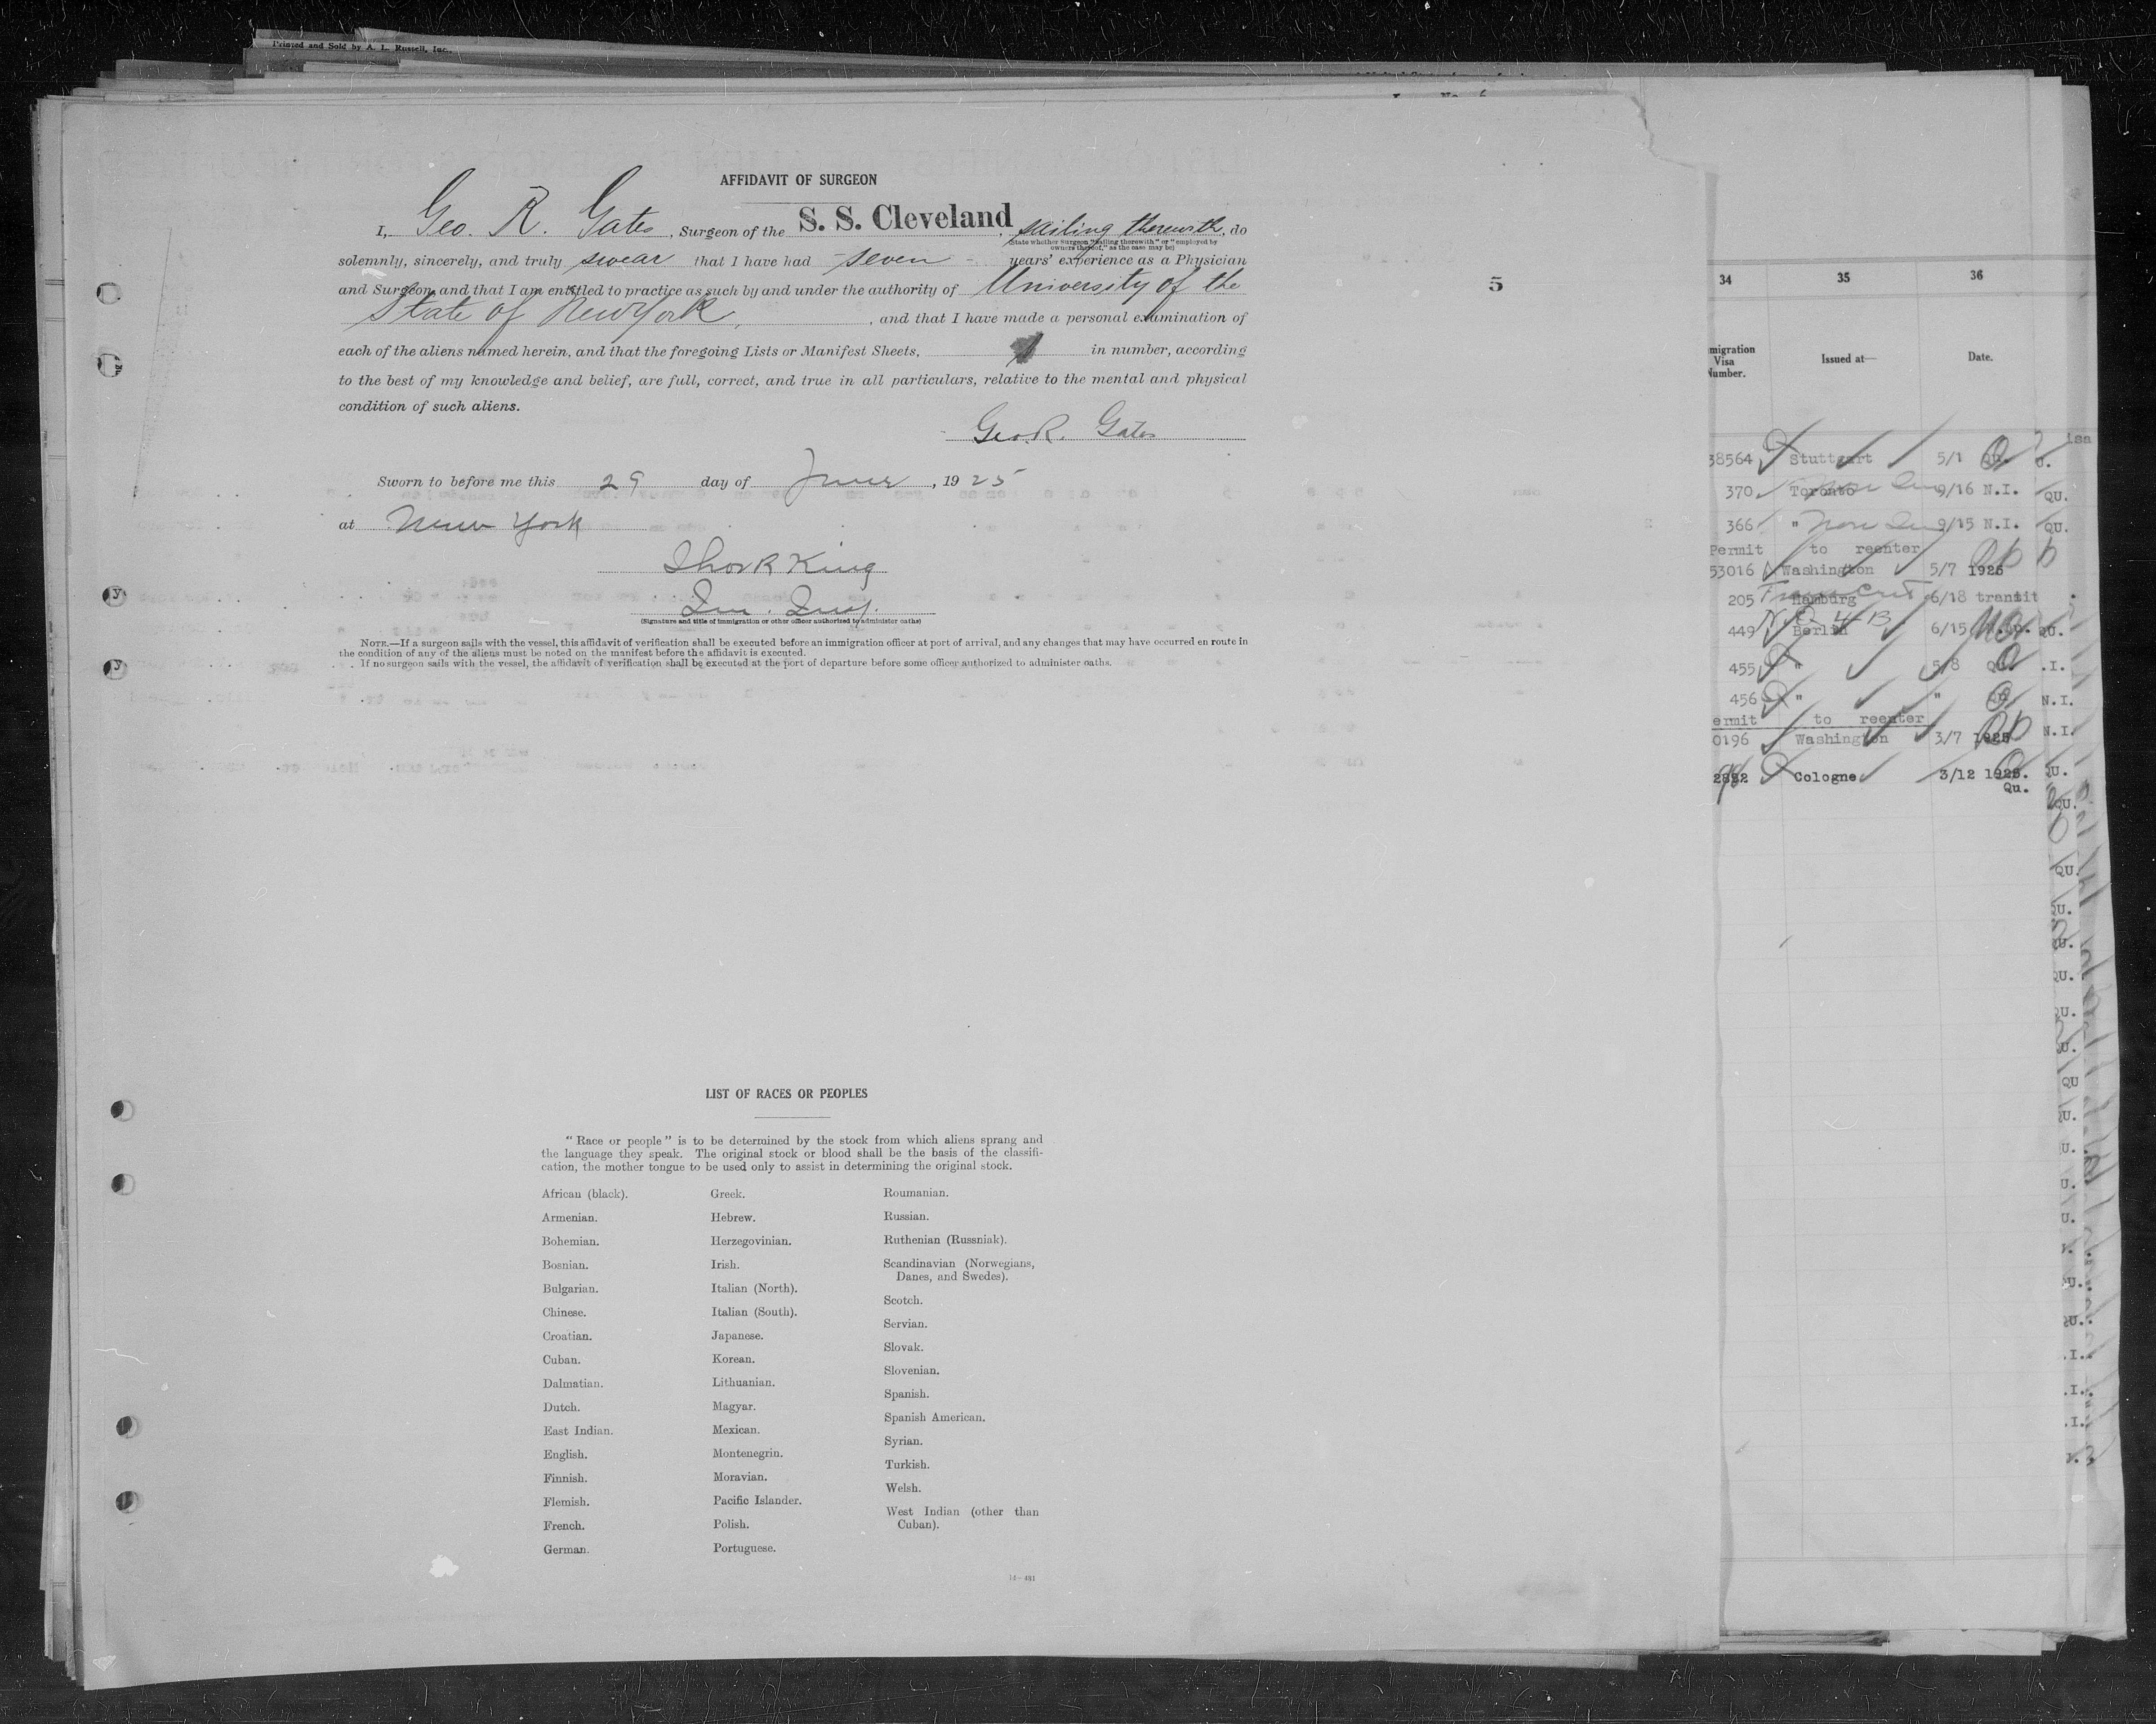 Printed and Sold by A. L. Russell, Inc.
AFFIDAVIT OF SURGEON
I, Geo. R. Gates, Surgeon of the S. S. Cleveland, sailing therewith, do
(State whether Surgeon "sailing therewith" or "employed by
owners thereof," as the case may be)
solemnly, sincerely, and truly swear that I have had - seven - years' experience as a Physician
and Surgeon and that I am entitled to practice as such by and under the authority of University of the
State of New York, , and that I have made a personal examination of
each of the aliens named herein, and that the foregoing Lists or Manifest Sheets, in number, according
to the best of my knowledge and belief, are full, correct, and true in all particulars, relative to the mental and physical
condition of such aliens.
Geo. R. Gates
Sworn to before me this 29 day of June, 1925
at New York
King
(Signature and title of immigration or other officer authorized to administer oaths)
NOTE.—If a surgeon sails with the vessel, this affidavit of verification shall be executed before an immigration officer at port of arrival, and any changes that may have occurred en route in
the condition of any of the aliens must be noted on the manifest before the affidavit is executed.
If no surgeon sails with the vessel, the affidavit of verification shall be executed at the port of departure before some officer authorized to administer oaths.
5
LIST OF RACES OR PEOPLES
"Race or people" is to be determined by the stock from which aliens sprang and
the language they speak. The original stock or blood shall be the basis of the classifi-
cation, the mother tongue to be used only to assist in determining the original stock.
African (black).
Armenian.
Bohemian.
Bosnian.
Bulgarian.
Chinese.
Croatian.
Cuban.
Dalmatian.
Dutch.
East Indian.
English.
Finnish.
Flemish.
French.
German.
Greek.
Hebrew.
Herzegovinian.
Irish.
Italian (North).
Italian (South).
Japanese.
Korean.
Lithuanian.
Magyar.
Mexican.
Montenegrin.
Moravian.
Pacific Islander.
Polish.
Portuguese.
Roumanian.
Russian.
Ruthenian (Russniak).
Scandinavian (Norwegians,
Danes, and Swedes).
Scotch.
Servian.
Slovak.
Slovenian.
Spanish.
Spanish American.
Syrian.
Turkish.
Welsh.
West Indian (other than
Cuban).
14—481
34 35 36
migration
Visa
Number.
Issued at—
Date.
38564 Stuttgart 5/1 Qu.
370 Toronto 9/16 N.I. QU.
366 " 9/15 N.I. QU.
Permit to reenter
53016 Washington 5/7 1926
205 Hamburg 6/18 transit
449 Berlin 6/15 QU.
455 " 5/8 Qu. .I.
456 " " Qu. N.I.
ermit to reenter
0196 Washington 3/7 1925 N.I.
Cologne 3/12 QU.
Qu.